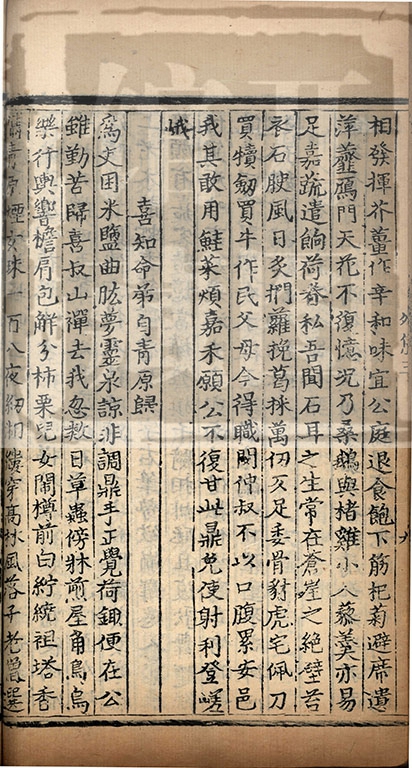 相發揮芥薑作辛和味宜公庭退食飽下筯杞菊避席遺
萍虀鴈門天花不復憶況乃桑鵝與楮雞小人藜羹亦易
足嘉蔬遣餉荷眷私吾聞石耳之生常在蒼崖之絕壁苔
衣石腴風日炙捫蘿挽葛採萬仞仄足委骨豺虎宅佩刀
買犢劒買牛作民父母今得職閔仲叔不以口腹累安邑
我其敢用鮭菜煩嘉禾願公不復甘此鼎免使射利登嵯
峨
喜知命弟自青原歸
困米鹽曲肱夢靈泉諒非調鼎手正覺荷鋤便在公
雖勤苦歸喜叔山禪去我忽數日草蟲傍牀煎屋角烏烏
樂行輿響檐肩包解分柿栗兒女鬧樽前白紵繞祖塔香
青原煙女珠一百八夜紉湘穿高林風落子老曾選